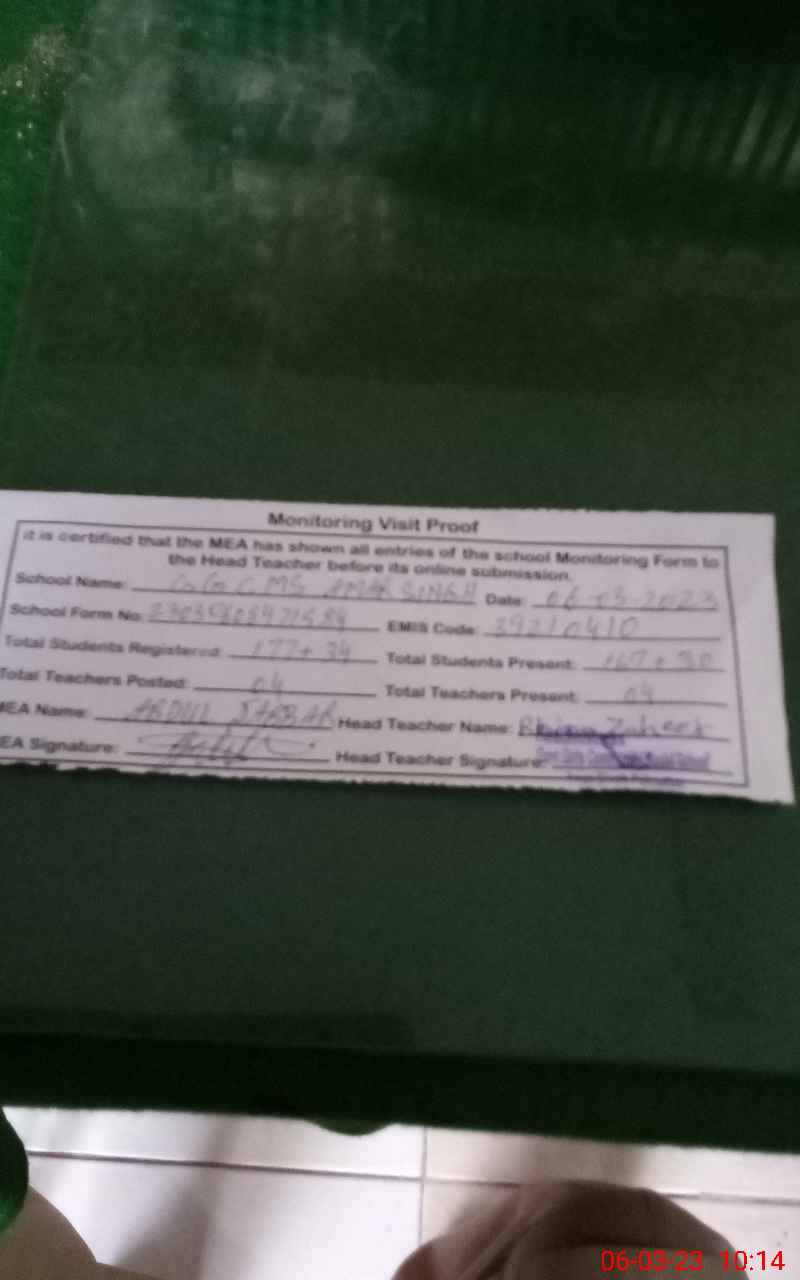 Monitoring Visit Proof
it is certified that the MEA has shown all entries of the school Monitoring Form to
the Head Teacher before its online submission.
School Name: GGCMS AMAR SINGH Date: 06-03-2023
School Form No: EMIS Code: 39210410
Total Students Registered: 177+34 Total Students Present: 167+30
Total Teachers Posted: 04 Total Teachers Present: 04
MEA Name: ABDUL JABBAR Head Teacher Name: Zaheer
EA Signature: Head Teacher Signature:
06-03-23 10:14